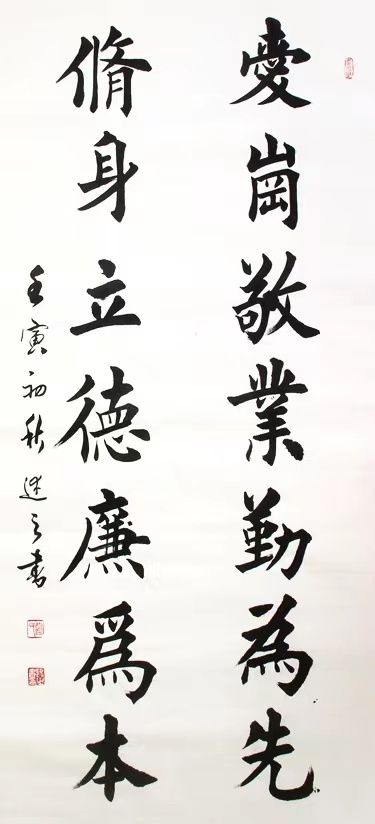 愛崗敬業勤為先
脩身立德廉爲本
壬寅初秋述之書